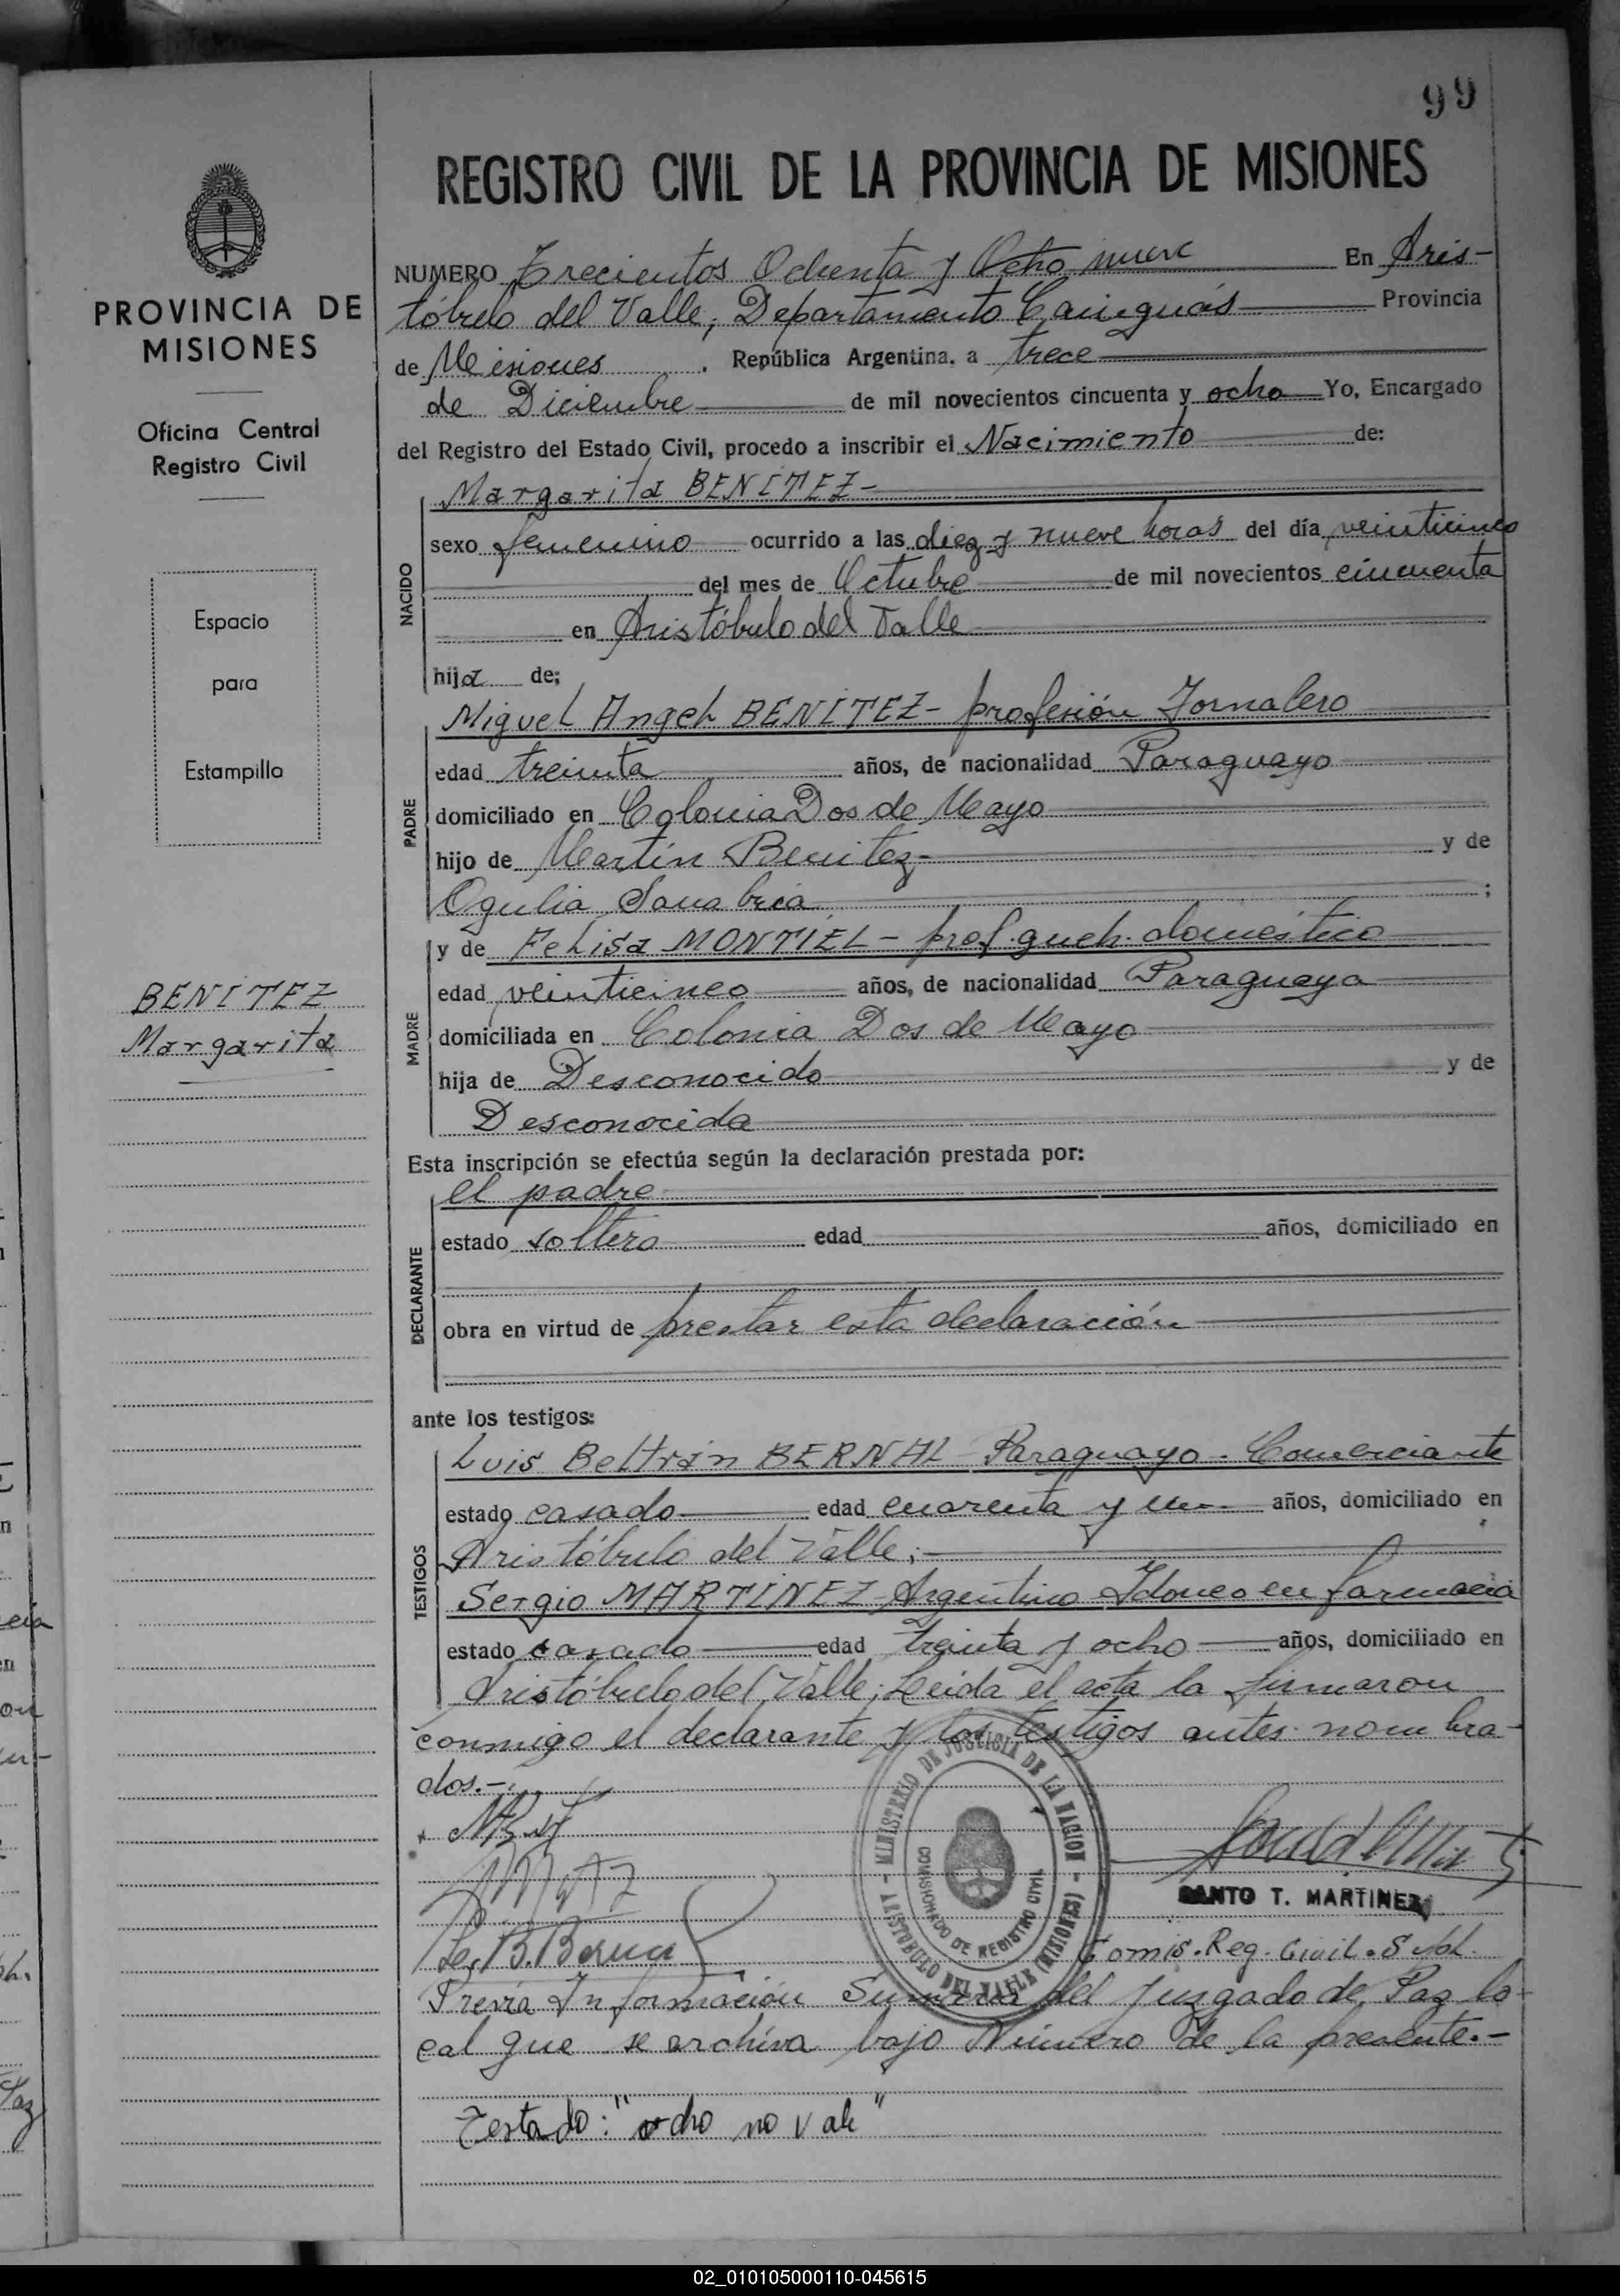 99
REGISTRO CIVIL DE LA PROVINCIA DE MISIONES
NUMERO Trecientos Ochenta y Ocho nueve En Aris-
tóbulo del Valle, Departamento Cainguás Provincia
de Misiones. República Argentina, a trece
de Diciembre de mil novecientos cincuenta y ocho Yo, Encargado
del Registro del Estado Civil, procedo a inscribir el Nacimiento de:
NACIDO
Margarita BENITEZ-
sexo femenino ocurrido a las diez y nueve horas del día veinticinco
del mes de Octubre de mil novecientos cincuenta
en Aristóbulo del Valle
hija de;
PADRE
Miguel Angel BENITEZ- profesión Jornalero
edad treinta años, de nacionalidad Paraguayo
domiciliado en Colonia Dos de Mayo
hijo de Martín Benitez- y de
Ogulia Sanabria ;
MADRE
y de Felisa MONTIEL- prof. queh. doméstico
edad veinticinco años, de nacionalidad Paraguaya
domiciliada en Colonia Dos de Mayo
hija de Desconocido y de
Desconocida
Esta inscripción se efectúa según la declaración prestada por:
DECLARANTE
el padre
estado soltero edad años, domiciliado en
obra en virtud de prestar esta declaración
ante los testigos:
TESTIGOS
Luis Beltrán BERNAL Paraguayo. Comerciante
estado casado edad cuarenta y un años, domiciliado en
Aristóbulo del Valle;
Sergio MARTINEZ Argentino Idoneo en farmacia
estado casado edad treinta y ocho años, domiciliado en
Aristóbulo del Valle; Leída el acta la firmaron
conmigo el declarante y los testigos antes nombra-
dos.-
MINISTERIO DE JUSTICIA DE LA NACION - ARISTOBULO DEL VALLE (MISIONES) -
COMISIONADO DE REGISTRO CIVIL
SANTO T. MARTINEZ
Comis. Reg. Civil. S
Previa Información Sumaria del Juzgado de Paz lo-
cal que se archiva bajo Número de la presente.-
Testado: "ocho no vale"
PROVINCIA DE
MISIONES
Oficina Central
Registro Civil
Espacio
para
Estampilla
BENITEZ
Margarita
02_010105000110-045615